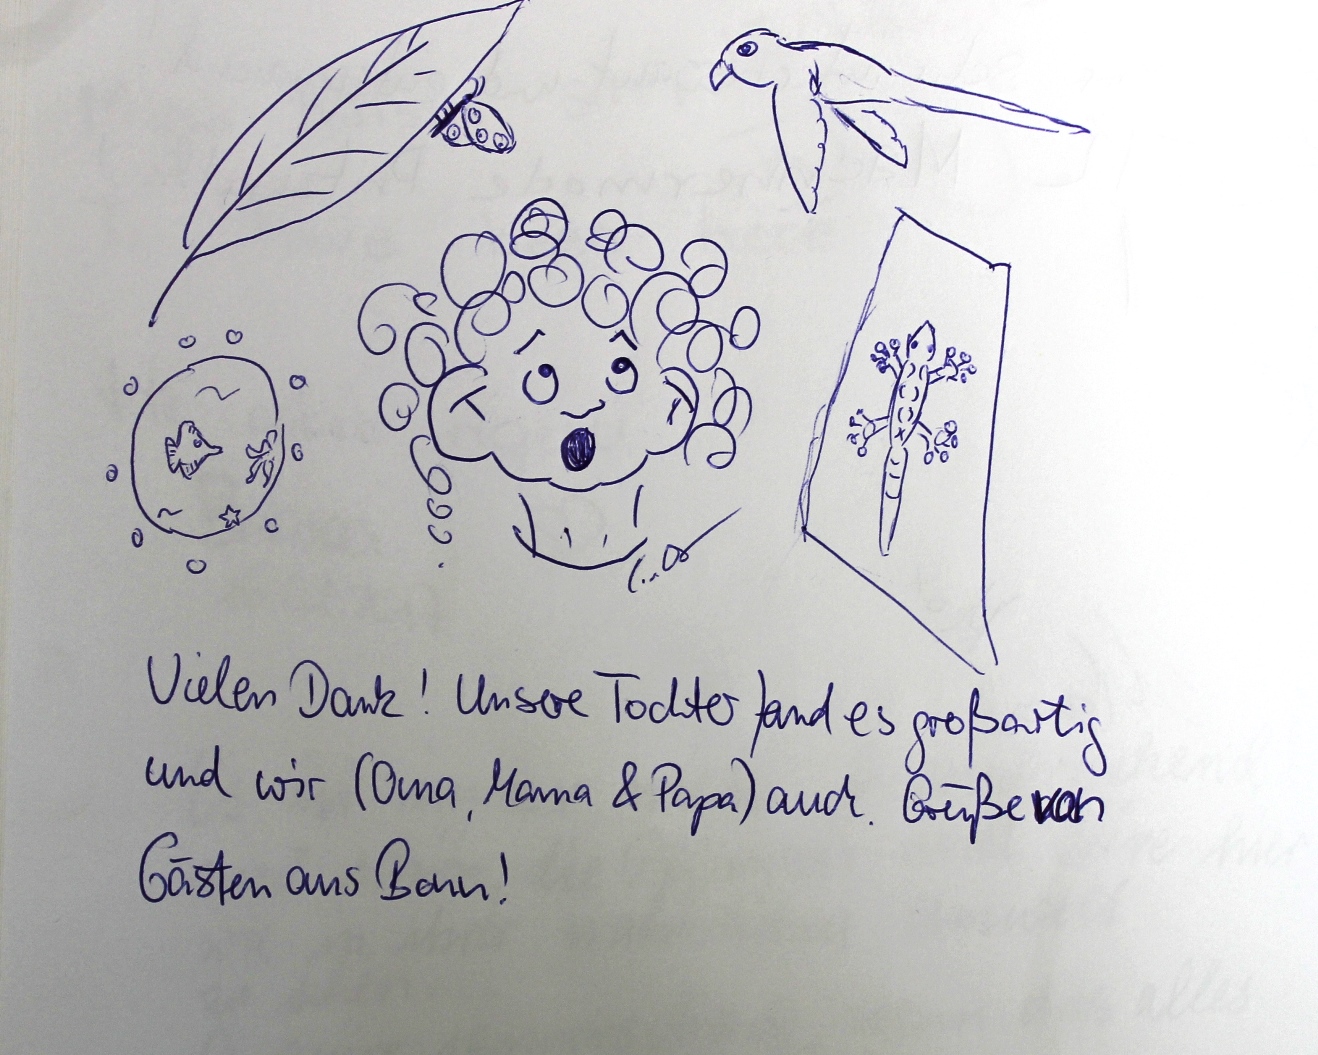 Vielen Dank! Unsere Tochter fand es großartig
und wir (Oma, Mama & Papa) auch. Grüße von
Gästen aus Bonn!